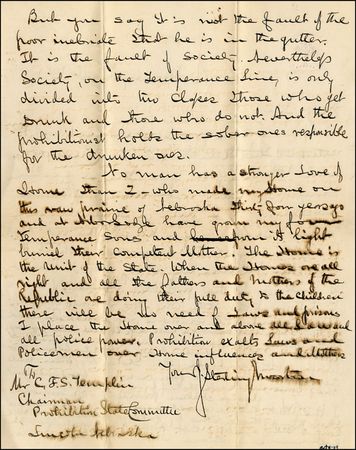 But you say it is not the fault of the
poor inebriate that he is in the gutter.
It is the fault of Society. Nevertheless
Society, on the Temperance Line, is only
divided into two Classes Those who get
Drunk and those who do not. And the
prohibitionist holds the sober ones responsible
for the drunken ones.
No man has a stronger Love of
Home than I - who made my Home on
this raw prairie of Nebraska thirty four years ago
and at Arbor Lodge have grown
Temperance Sons and
buried their Mother. The Home is
the Unit of the State. When the Homes are all
right and all the Fathers and Mothers of the
Republic are doing their full duty to the children
there will be no need of Laws and prisons
I place the Home over and above all Law and
all police power. Prohibition exalts Laws and
Policemen over Home influences and Mothers
Yours J. Sterling Morton
To
Mr C. F. S. Templin
Chairman
Prohibition State Committee
Lincoln Nebraska